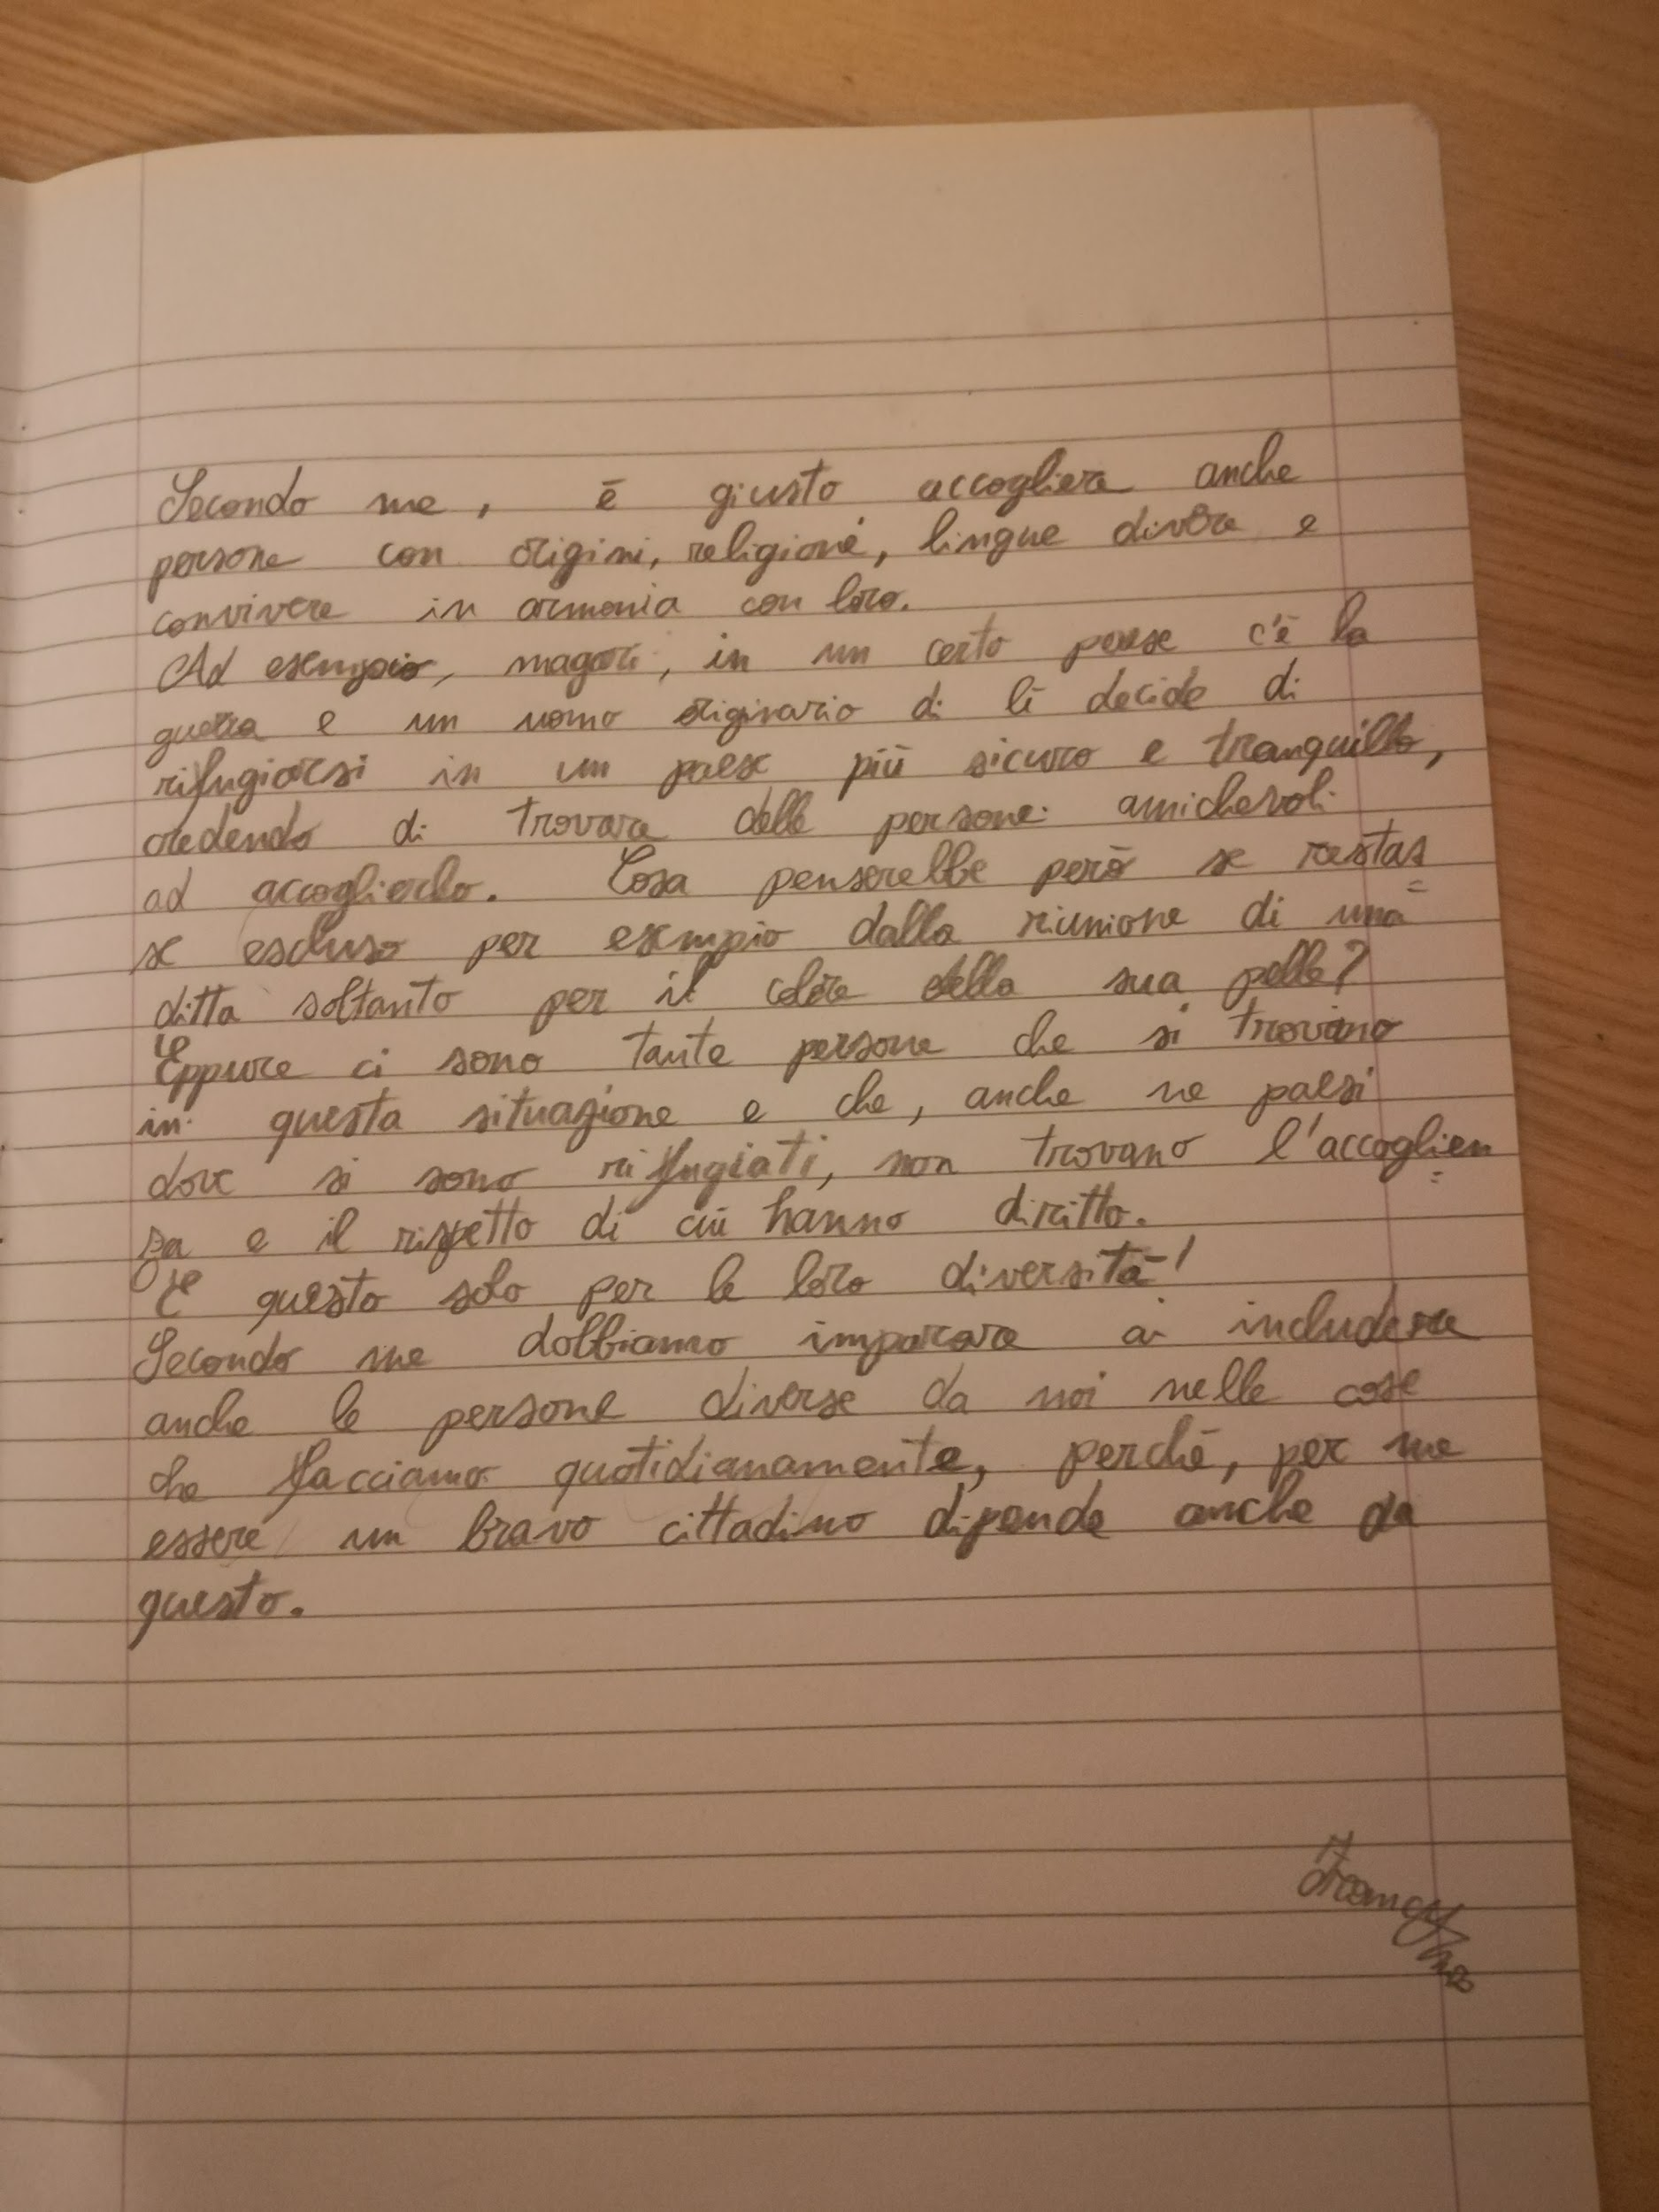 Secondo me, è giusto accogliere anche
persone con origini, religione, lingue divere e
convivere in armonia con loro.
Ad esempio, magari, in un certo paese c'è la
guerra e un uomo originario di lì decide di
rifugiarsi in un paese più sicuro e tranquillo,
credendo di trovare delle persone amichevoli
ad accoglierlo. Cosa penserebbe però se restas
se escluso per esempio dalla riunione di una
ditta soltanto per il colore della sua pelle?
Eppure ci sono tante persone che si trovano
in questa situazione e che, anche ne paesi
dove si sono rifugiati, non trovano l'accoglien
za e il rispetto di cui hanno diritto.
E questo solo per le loro diversità!
Secondo me dobbiamo imparare a includere
anche le persone diverse da noi nelle cose
che facciamo quotidianamente, perché, per me
essere un bravo cittadino dipende anche da
questo.